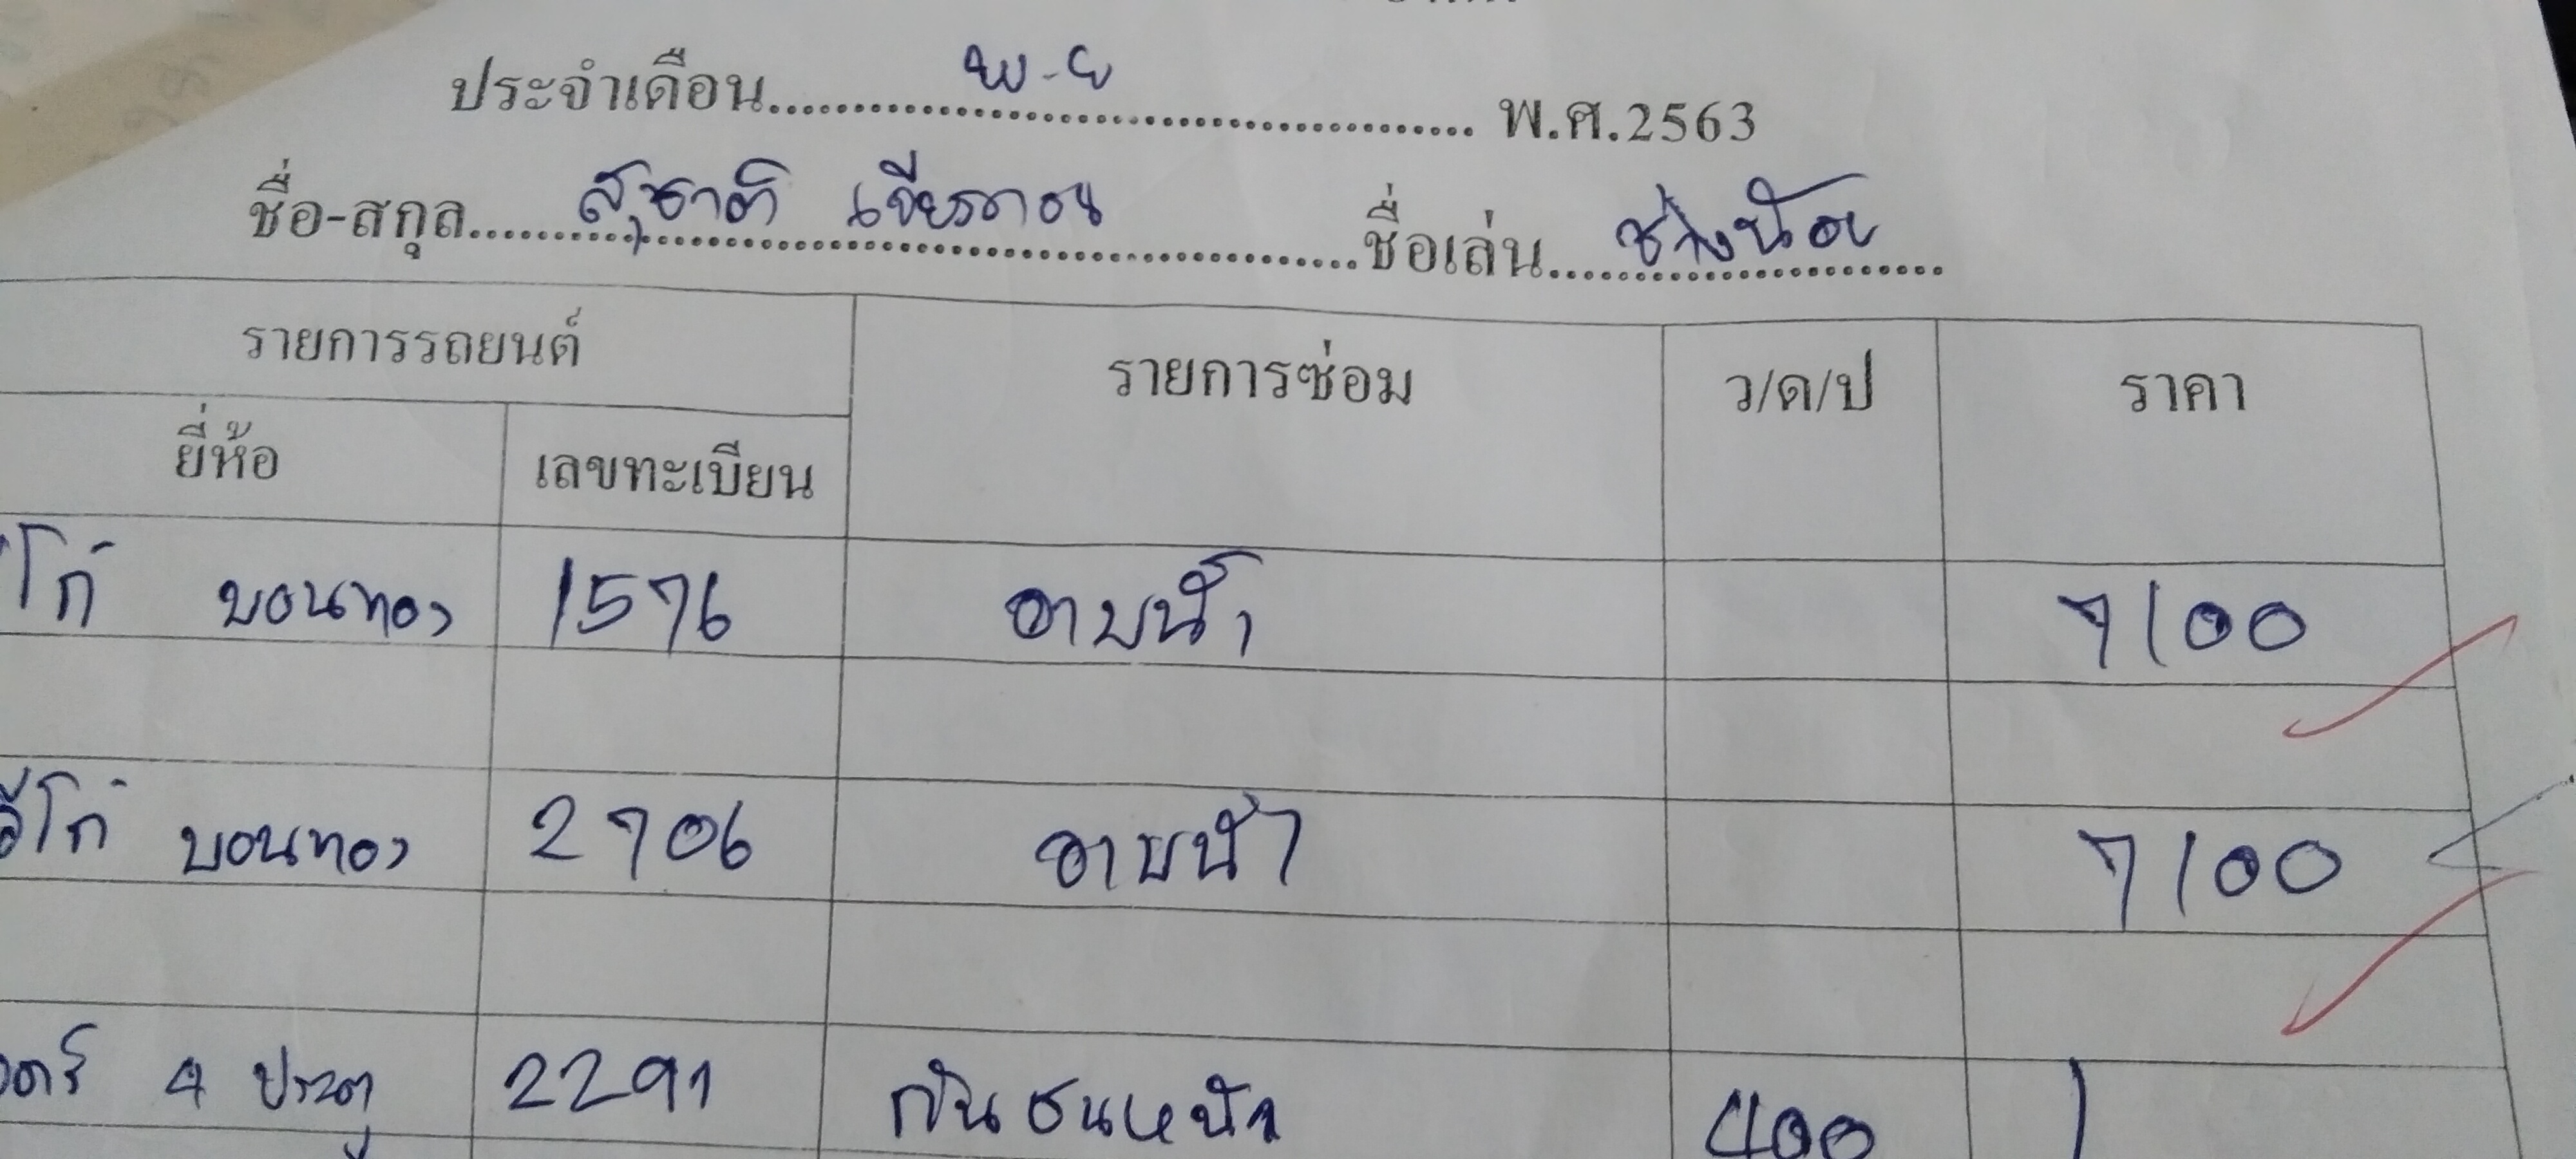 ประจำเดือน พ-ย พ.ศ.2563
ชื่อ-สกุล สุชาติ เจียรดาอน ชื่อเล่น ช่างน้อย
รายการรถยนต์ รายการซ่อม ว/ด/ป ราคา
ยี่ห้อ เลขทะเบียน
โก้ บอนทอง 1576 อาบน้ำ 7100
วีโก้ บอนทอง 2706 อาบน้ำ 7100
4 ประตู 2291 กันชนหน้า 400